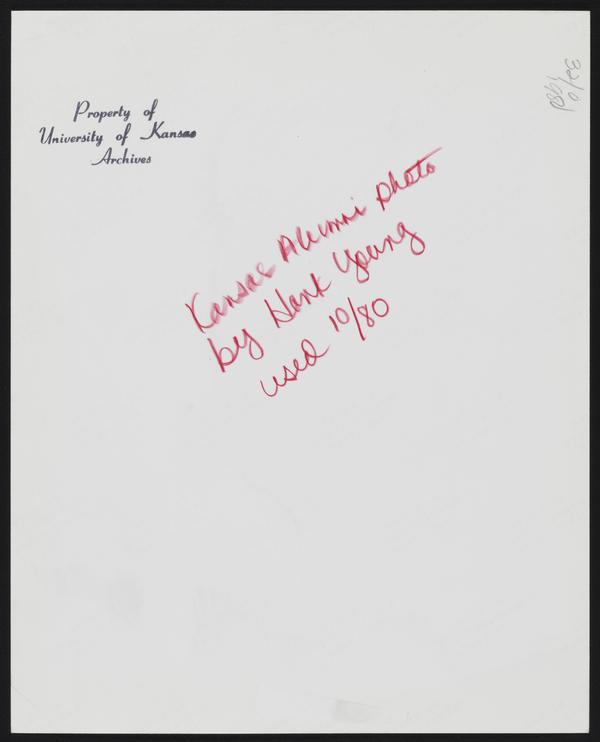 Property of
University of Kansas
Archives
Kansas Alumni photo
by Hank Young
used 10/80